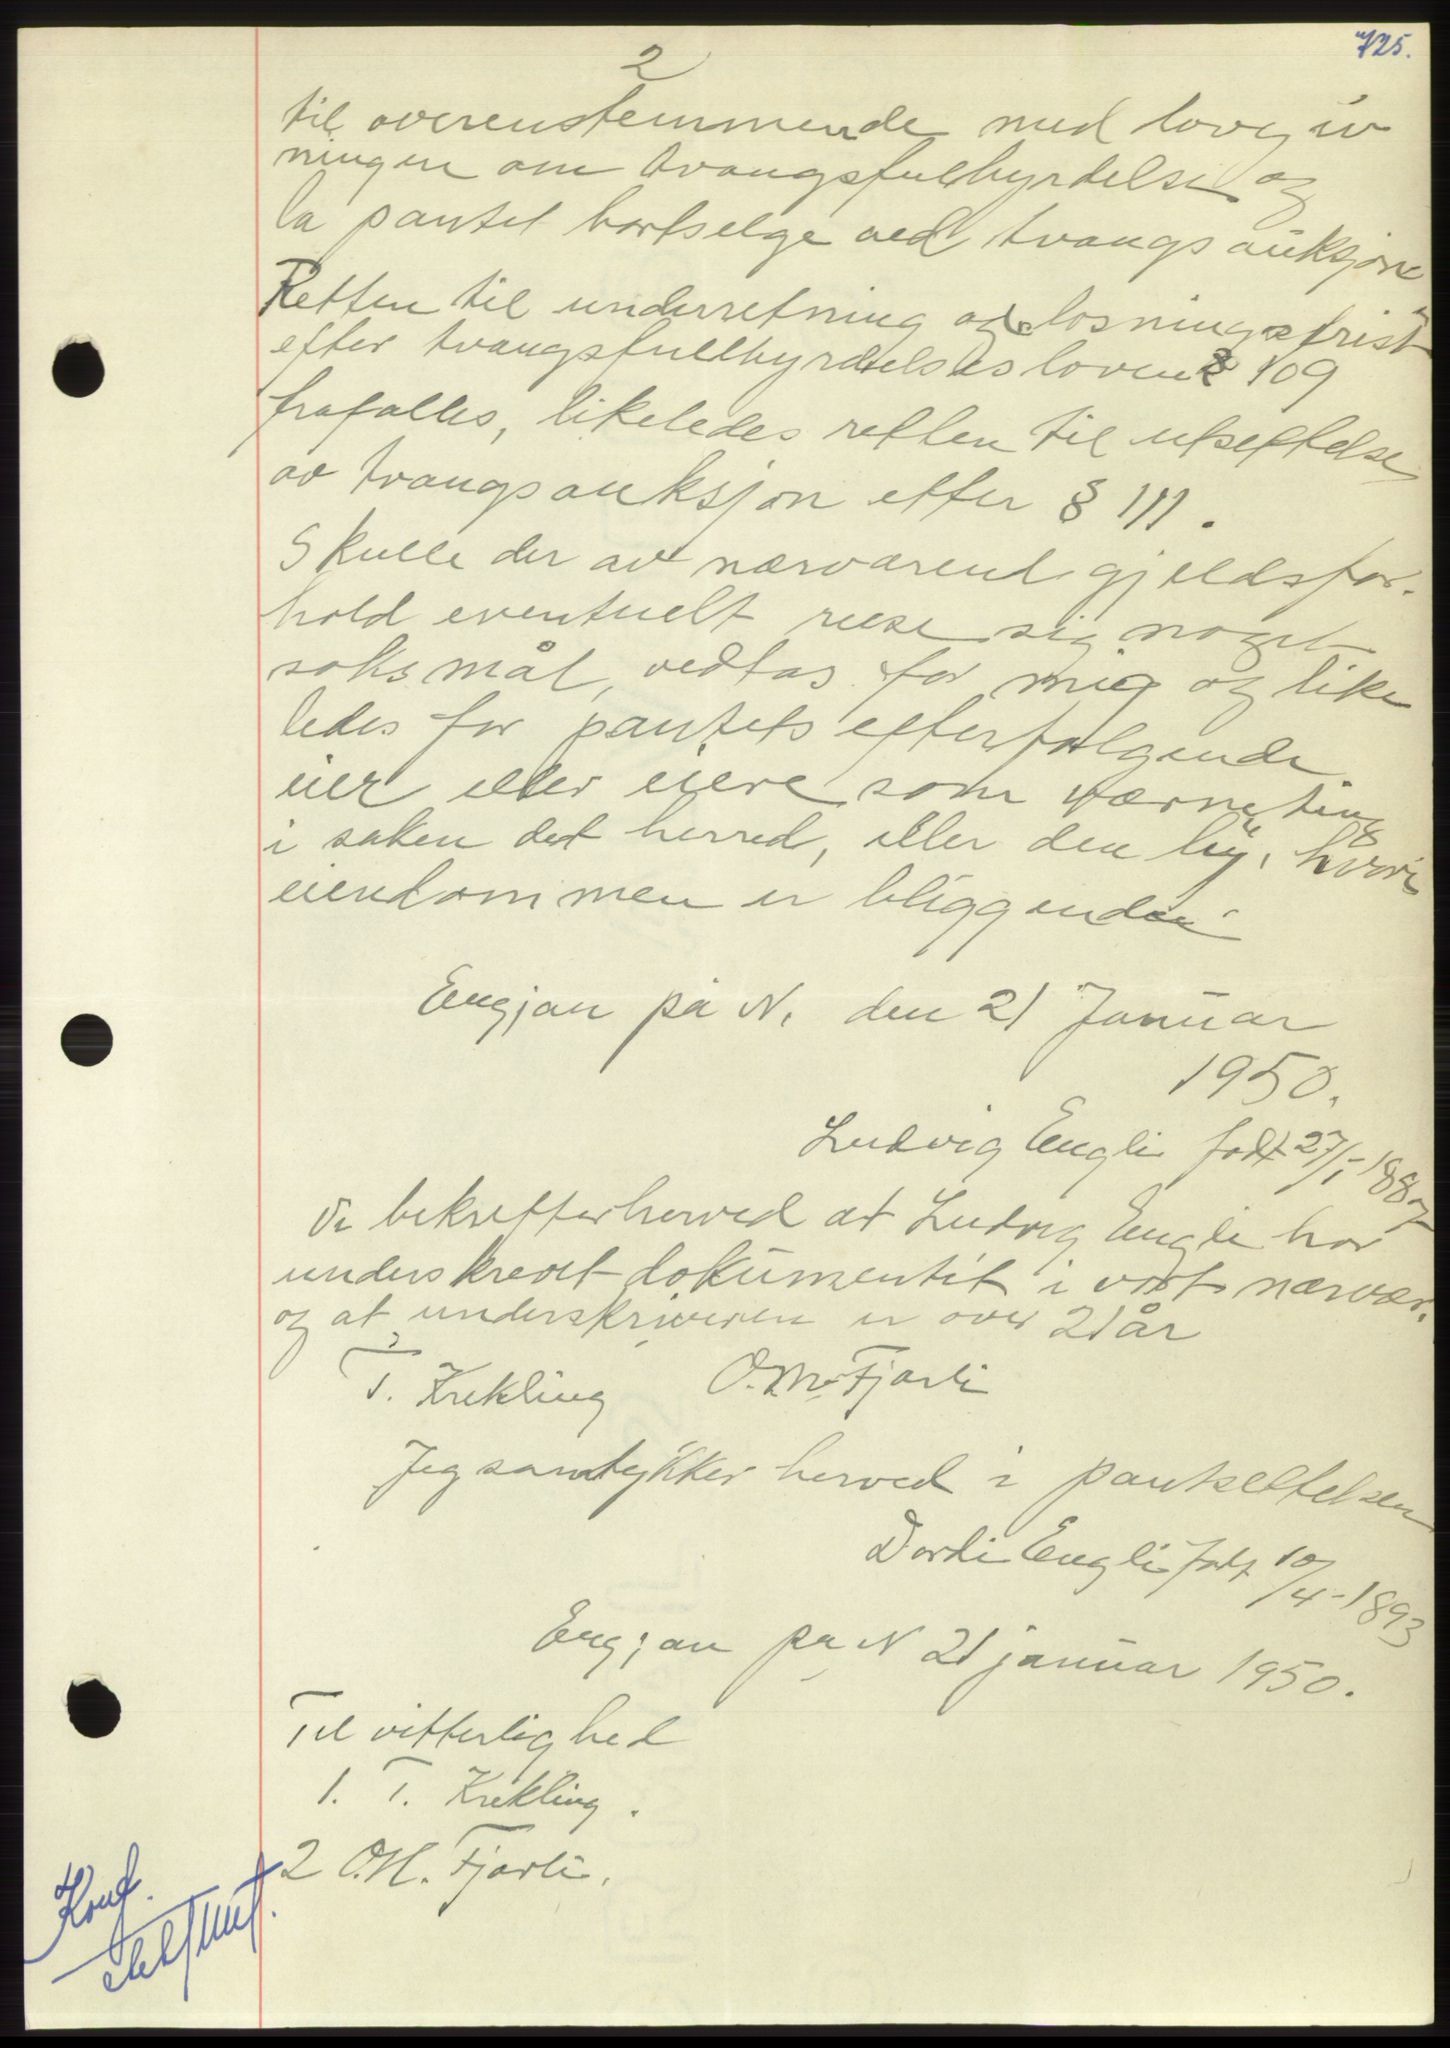 725.
2
til overenstemmende med lovgiv
ningen om tvangsfulbyrdelse og
la pantet bortselge ved tvangs auksjon
Retten til underretning og løsningsfrist
efter tvangsfullbyrdelses loven § 109
frafalles, likeledes retten til utsettelse
av tvangsauksjon efter § 111.
Skulle der av nærværend gjeldsfor-
hold eventuelt reise sig noget
søksmål, vedtas for mig og like
ledes for pantets efterfølgende
eier eller eiere som værneting
i saken det herred, eller den by, hvori
eiendommen er bliggende
Engjan på N. den 21 Januar
1950.
Ludvig Engli født 27/1-1887
Vi bekrefter herved at Ludvig Engli har
underskrevet dokumentet i vort nærvær.
og at underskriveren er over 21 år
T. Krekling O.M. Fjærli
Jeg samtykker herved i pantsettelsen
Dordi Engli født 10/4-1893
Engjan på N 21 januar 1950.
Til vitterlighed
1. T. Krekling.
2 O.M. Fjærli.
Konf.